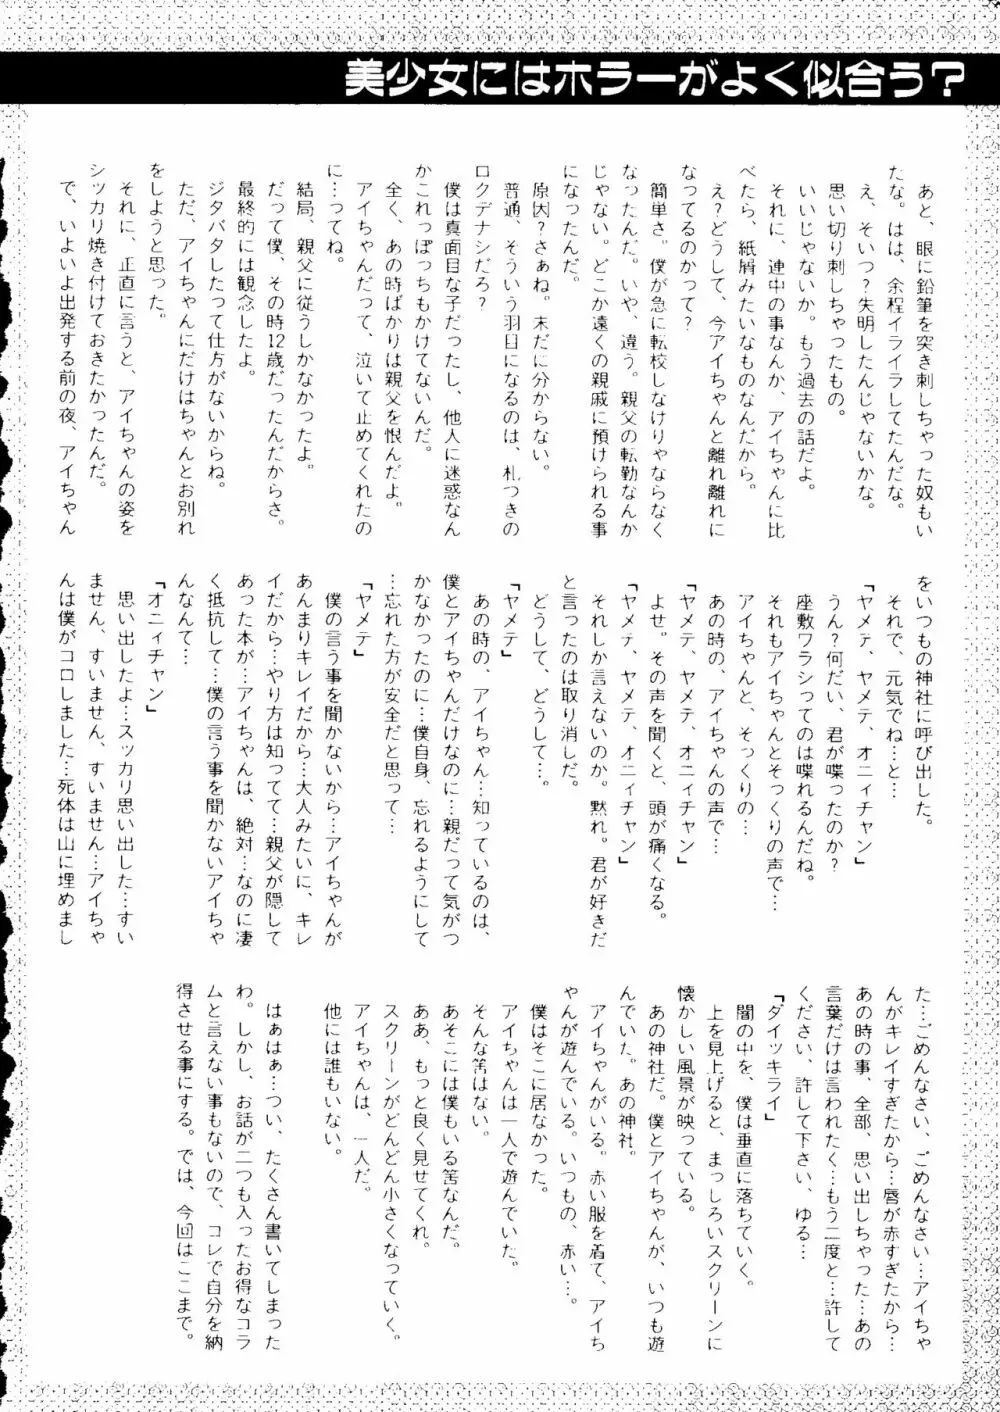 美少女にはホラーがよく似合う？
あと、眼に鉛筆を突き刺しちゃった奴もい
たな。はは、余程イライラしてたんだな。
え、そいつ？失明したんじゃないかな。
思い切り刺しちゃったもの。
いいじゃないか。もう過去の話だよ。
それに、連中の事なんか、アイちゃんに比
べたら、紙屑みたいなものなんだから。
え？どうして、今アイちゃんと離れ離れに
なってるのかって？
簡単さ。僕が急に転校しなけりゃならなく
なったんだ。いや、違う。親父の転勤なんか
じゃない。どこか遠くの親戚に預けられる事
になったんだ。
原因？さぁね。末だに分からない。
普通、そういう羽目になるのは、札つきの
ロクデナシだろ？
僕は真面目な子だったし、他人に迷惑なん
かこれっぽっちもかけてないんだ。
全く、あの時ばかりは親父を恨んだよ。
アイちゃんだって、泣いて止めてくれたの
に…ってね。
結局、親父に従うしかなかったよ。
だって僕、その時12歳だったんだからさ。
最終的には観念したよ。
ジタバタしたって仕方がないからね。
ただ、アイちゃんにだけはちゃんとお別れ
をしようと思った。
それに、正直に言うと、アイちゃんの姿を
シッカリ焼き付けておきたかったんだ。
で、いよいよ出発する前の夜、アイちゃん
をいつもの神社に呼び出した。
それで、元気でね…と…
「ヤメテ、ヤメテ、オニィチャン」
うん？何だい、君が喋ったのか？
座敷ワラシってのは喋れるんだね。
それもアイちゃんとそっくりの声で…
アイちゃんと、そっくりの…
あの時の、アイちゃんの声で…
「ヤメテ、ヤメテ、オニィチャン」
よせ。その声を聞くと、頭が痛くなる。
「ヤメテ、ヤメテ、オニィチャン」
それしか言えないのか。黙れ。君が好きだ
と言ったのは取り消しだ。
どうして、どうして…。
「ヤメテ」
あの時の、アイちゃん…知っているのは、
僕とアイちゃんだけなのに…親だって気がつ
かなかったのに…僕自身、忘れるようにして
…忘れた方が安全だと思って…
「ヤメテ」
僕の言う事を聞かないから…アイちゃんが
あんまりキレイだから…大人みたいに、キレ
イだから…やり方は知ってて…親父が隠して
あった本が…アイちゃんは、絶対…なのに凄
く抵抗して…僕の言う事を聞かないアイちゃ
んなんて…
「オニィチャン」
思い出したよ…スッカリ思い出した…すい
ません、すいません、すいません…アイちゃ
んは僕がコロしました…死体は山に埋めまし
た…ごめんなさい、ごめんなさい…アイちゃ
んがキレイすぎたから…唇が赤すぎたから…
あの時の事、全部、思い出しちゃった…あの
言葉だけは言われたく…もう二度と…許して
ください、許して下さい、ゆる…
「ダイッキライ」
闇の中を、僕は垂直に落ちていく。
上を見上げると、まっしろいスクリーンに
懐かしい風景が映っている。
あの神社だ。僕とアイちゃんが、いつも遊
んでいた。あの神社。
アイちゃんがいる。赤い服を着て、アイち
ゃんが遊んでいる。いつもの、赤い…。
僕はそこに居なかった。
アイちゃんは一人で遊んでいた。
そんな筈はない。
あそこには僕もいる筈なんだ。
ああ、もっと良く見せてくれ。
スクリーンがどんどん小さくなっていく。
アイちゃんは、一人だ。
他には誰もいない。
はぁはぁ…つい、たくさん書いてしまった
わ。しかし、お話が二つも入ったお得なコラ
ムと言えない事もないので、コレで自分を納
得させる事にする。では、今回はここまで。